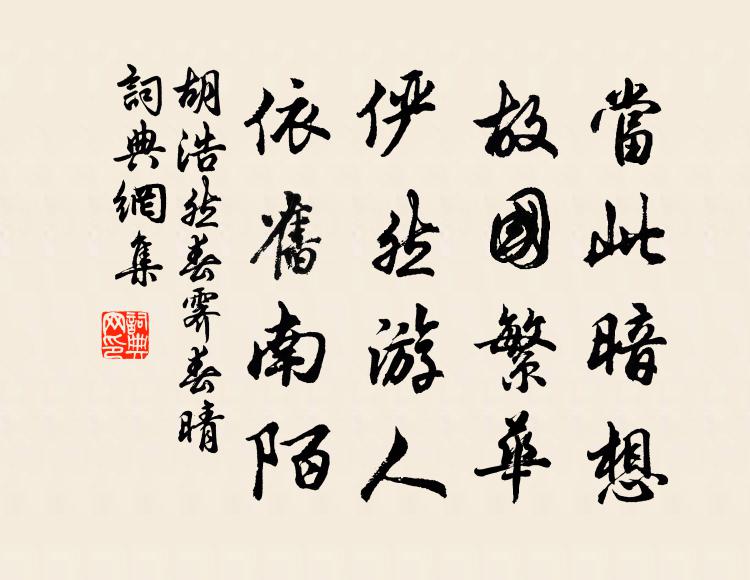 當此暗想
故國繁華
俨然游人
依舊南陌
胡浩然春霽春晴
詞典網集
詞典
网印